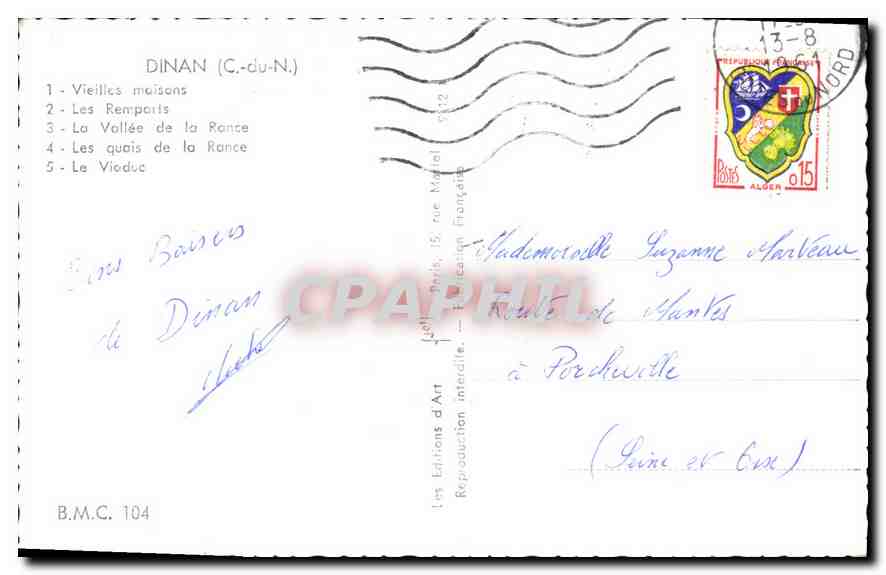 DINAN (C.-du-N.)
1 - Vieilles maisons
2 - Les Remparts
3 - La Vallée de la Rance
4 - Les quais de la Rance
5 - Le Viaduc
13-8
1961
NORD
REPUBLIQUE FRANÇAISE
POSTES
0,15
ALGER
Bons Baisers
de Dinan
Mademoiselle Suzanne Marveau
Route de Mantes
à Porcheville
(Seine et Oise)
Les Editions d'Art
Paris, 15, rue Martel
Reproduction interdite. — Fabrication Française
CPAPHIL
B.M.C. 104